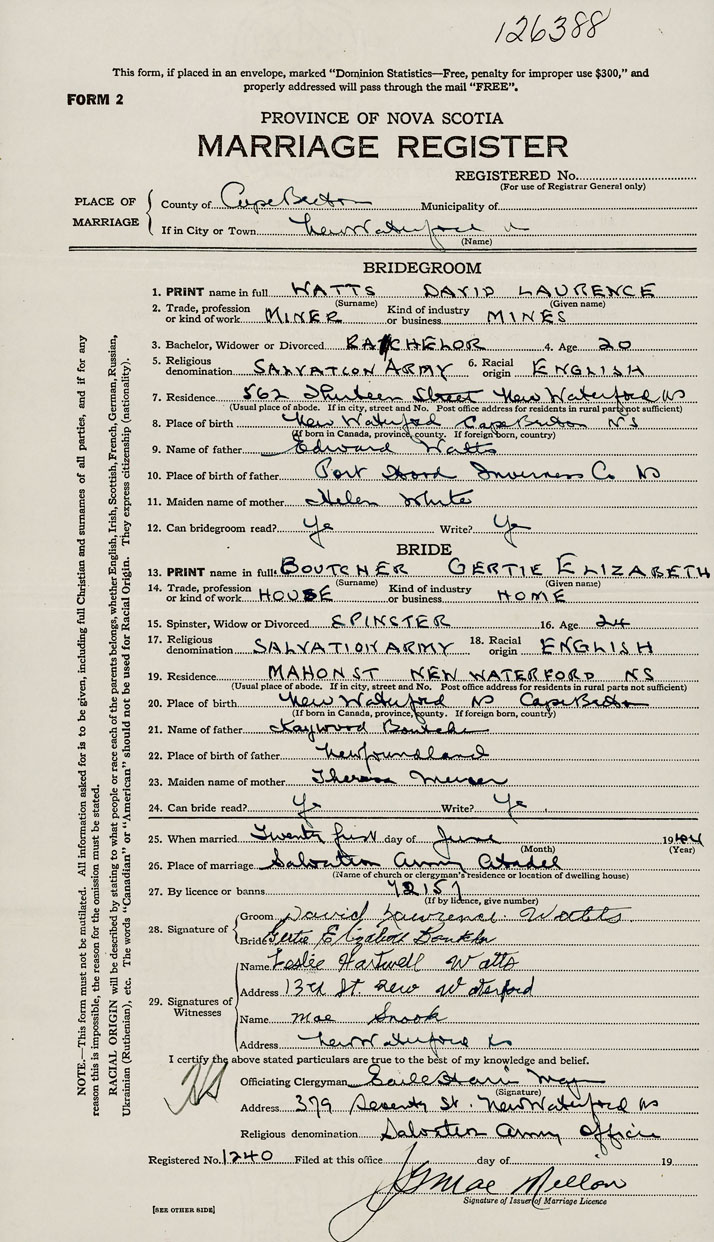 126388
This form, if placed in an envelope, marked "Dominion Statistics—Free, penalty for improper use $300," and
properly addressed will pass through the mail "FREE".
FORM 2
PROVINCE OF NOVA SCOTIA
MARRIAGE REGISTER
REGISTERED No.
(For use of Registrar General only)
PLACE OF MARRIAGE
County of Cape Breton Municipality of
If in City or Town New Waterford
(Name)
BRIDEGROOM
1. PRINT name in full WATTS DAVID LAURENCE
(Surname) (Given name)
2. Trade, profession or kind of work MINER Kind of industry or business MINES
3. Bachelor, Widower or Divorced BACHELOR 4. Age 20
5. Religious denomination SALVATION ARMY 6. Racial origin ENGLISH
7. Residence 562 Thirteen Street New Waterford NS
(Usual place of abode. If in city, street and No. Post office address for residents in rural parts not sufficient)
8. Place of birth New Waterford Cape Breton NS
(If born in Canada, province, county. If foreign born, country)
9. Name of father Edward Watts
10. Place of birth of father Port Hood Inverness Co NS
11. Maiden name of mother Helen White
12. Can bridegroom read? Ye Write? Ye
BRIDE
13. PRINT name in full BOUTCHER GERTIE ELIZABETH
(Surname) (Given name)
14. Trade, profession or kind of work HOUSE Kind of industry or business HOME
15. Spinster, Widow or Divorced SPINSTER 16. Age 24
17. Religious denomination SALVATION ARMY 18. Racial origin ENGLISH
19. Residence MAHON ST NEW WATERFORD NS
(Usual place of abode. If in city, street and No. Post office address for residents in rural parts not sufficient)
20. Place of birth New Waterford NS Cape Breton
(If born in Canada, province, county. If foreign born, country)
21. Name of father Boutcher
22. Place of birth of father Newfoundland
23. Maiden name of mother Theresa Mercer
24. Can bride read? Ye Write? Ye
25. When married Twenty first day of June 1944
(Month) (Year)
26. Place of marriage Salvation Army Citadel
(Name of church or clergyman's residence or location of dwelling house)
27. By licence or banns 72157
(If by licence, give number)
28. Signature of
Groom David Lawrence Watts
Bride Gertie Elizabeth Boutcher
29. Signatures of Witnesses
Name Leslie Hartwell Watts
Address 13th St. New Waterford
Name Mae Snook
Address New Waterford NS
I certify the above stated particulars are true to the best of my knowledge and belief.
Officiating Clergyman Harris Maj
(Signature)
Address 379 Seventh St. New Waterford NS
Religious denomination Salvation Army Officer
Registered No. 1240 Filed at this office day of 19
J G Mac
Signature of Issuer of Marriage Licence
[SEE OTHER SIDE]
NOTE.—This form must not be mutilated. All information asked for is to be given, including full Christian and surnames of all parties, and if for any
reason this is impossible, the reason for the omission must be stated.
RACIAL ORIGIN will be described by stating to what people or race each of the parents belongs, whether English, Irish, Scottish, French, German, Russian,
Ukrainian (Ruthenian), etc. The words "Canadian" or "American" should not be used for Racial Origin. They express citizenship (nationality).